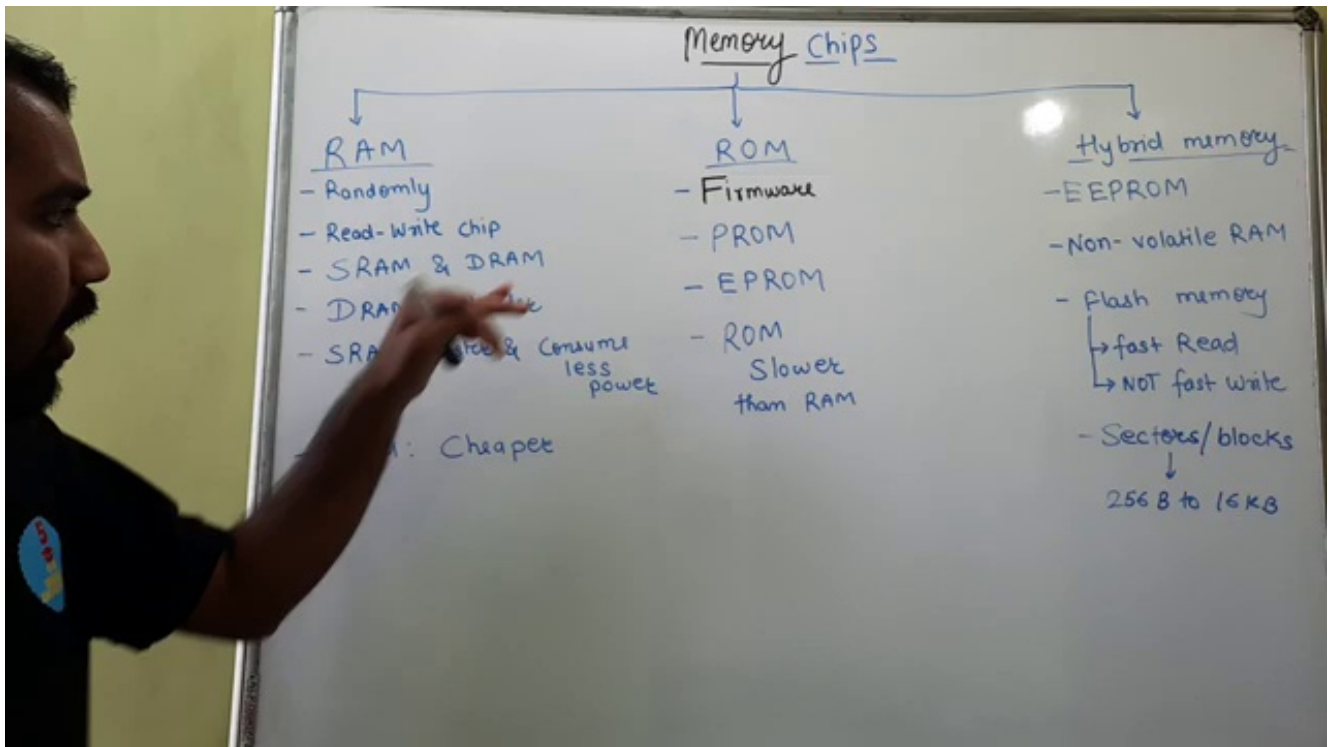 Memory Chips
RAM
- Randomly
- Read-Write chip
- SRAM & DRAM
- DRAM
- SRA & Consume
less
power
: Cheaper
ROM
- Firmware
- PROM
- EPROM
- ROM
Slower
than RAM
Hybrid memory
- EEPROM
- Non-volatile RAM
- Flash memory
fast Read
NOT fast write
- Sectors/blocks
256 B to 16 KB